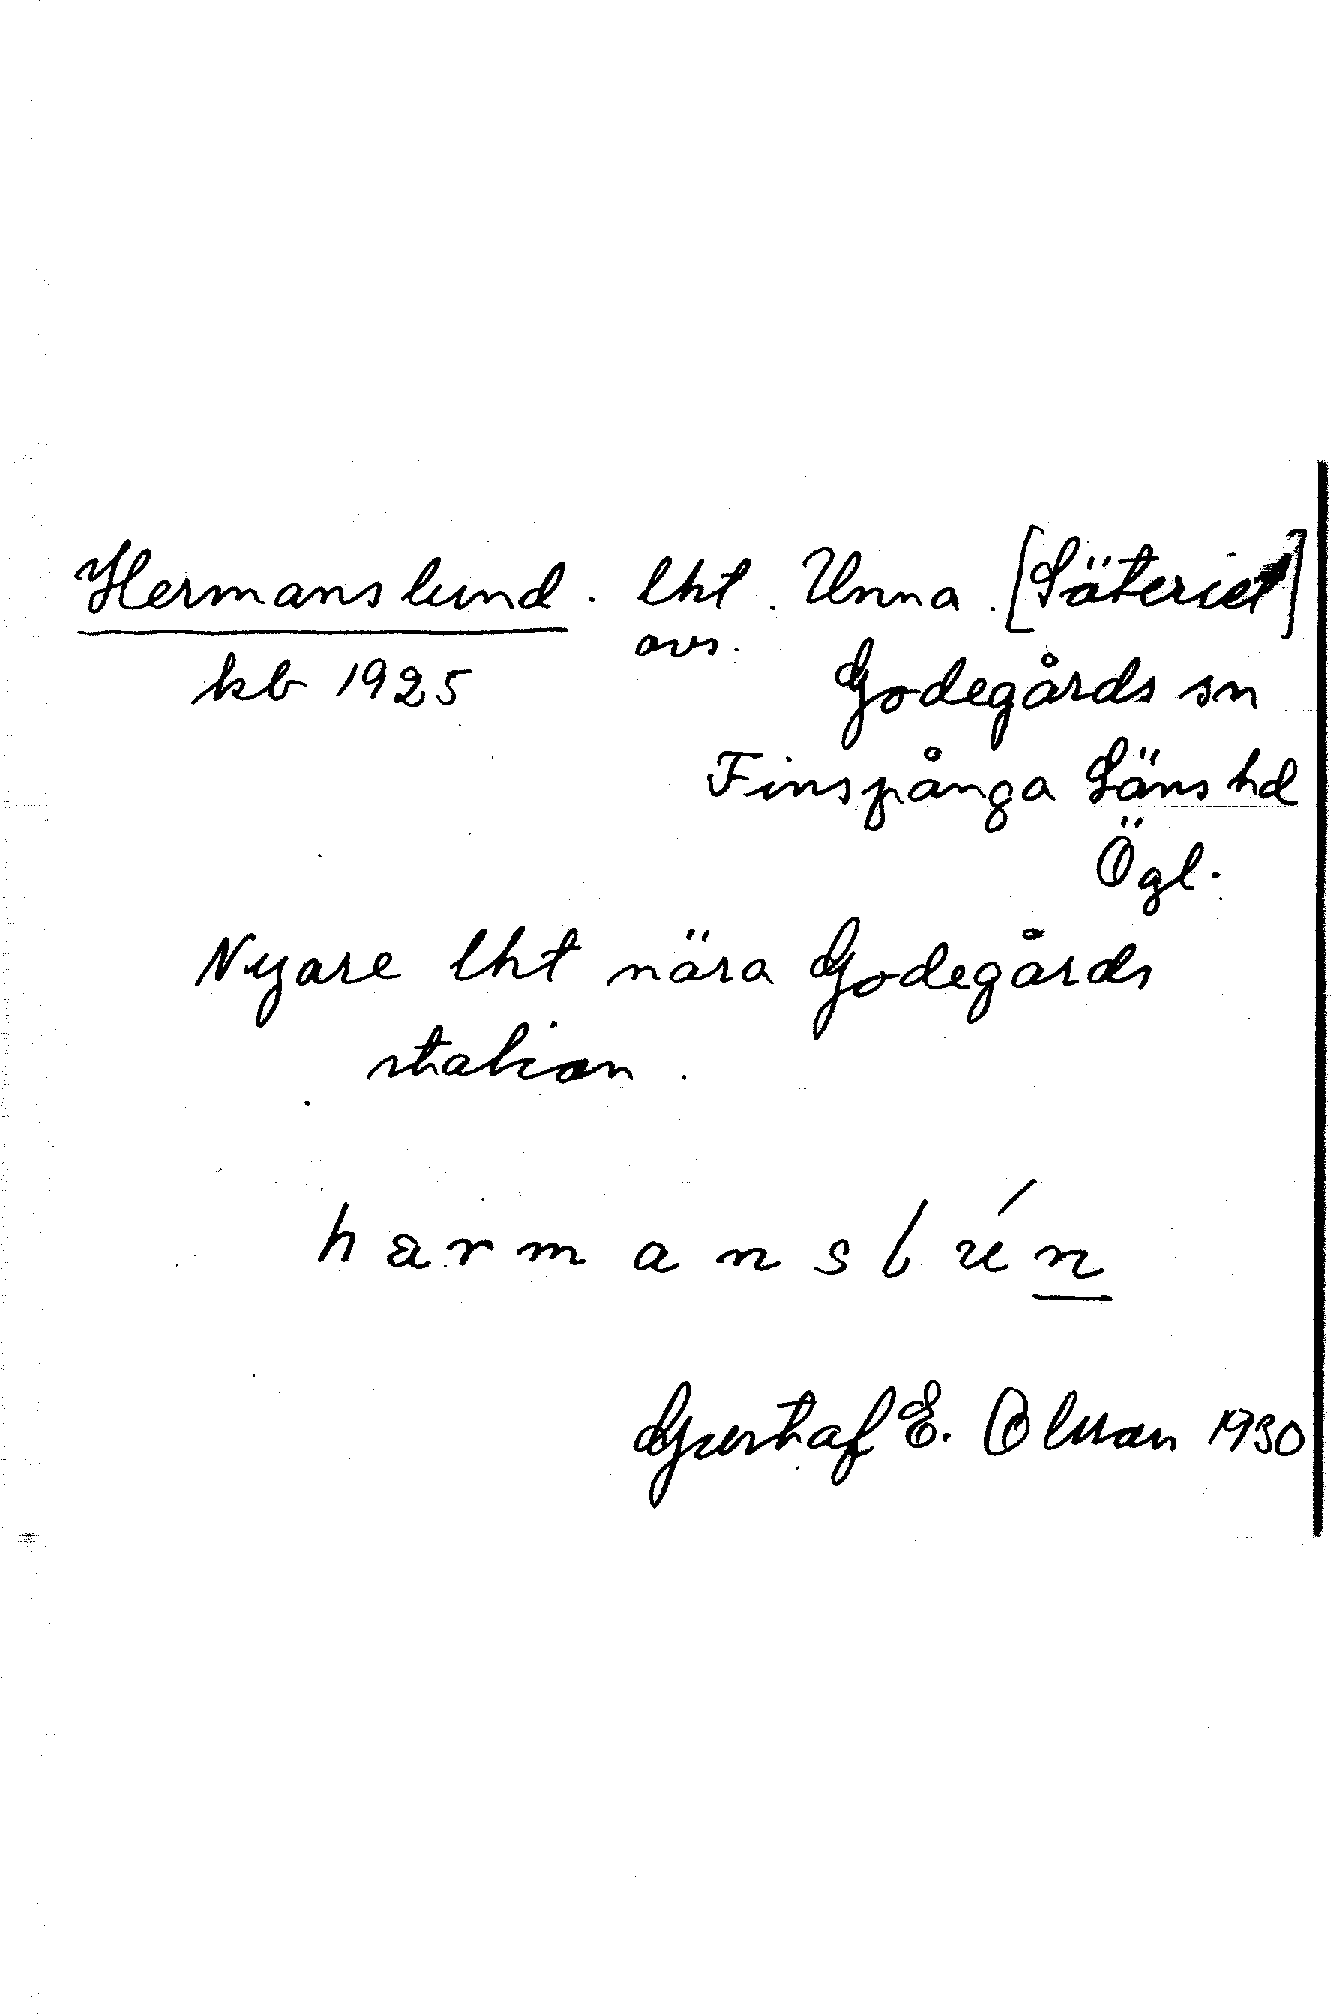 Hermanslund. lht. Unna. [Säteriet]
avs.
kb 1925 Godegårds sn
Finspånga Läns hd
Ögl.
Nyare lht nära Godegårds
station.
harmanslún
Gustaf E. Olsson 1930